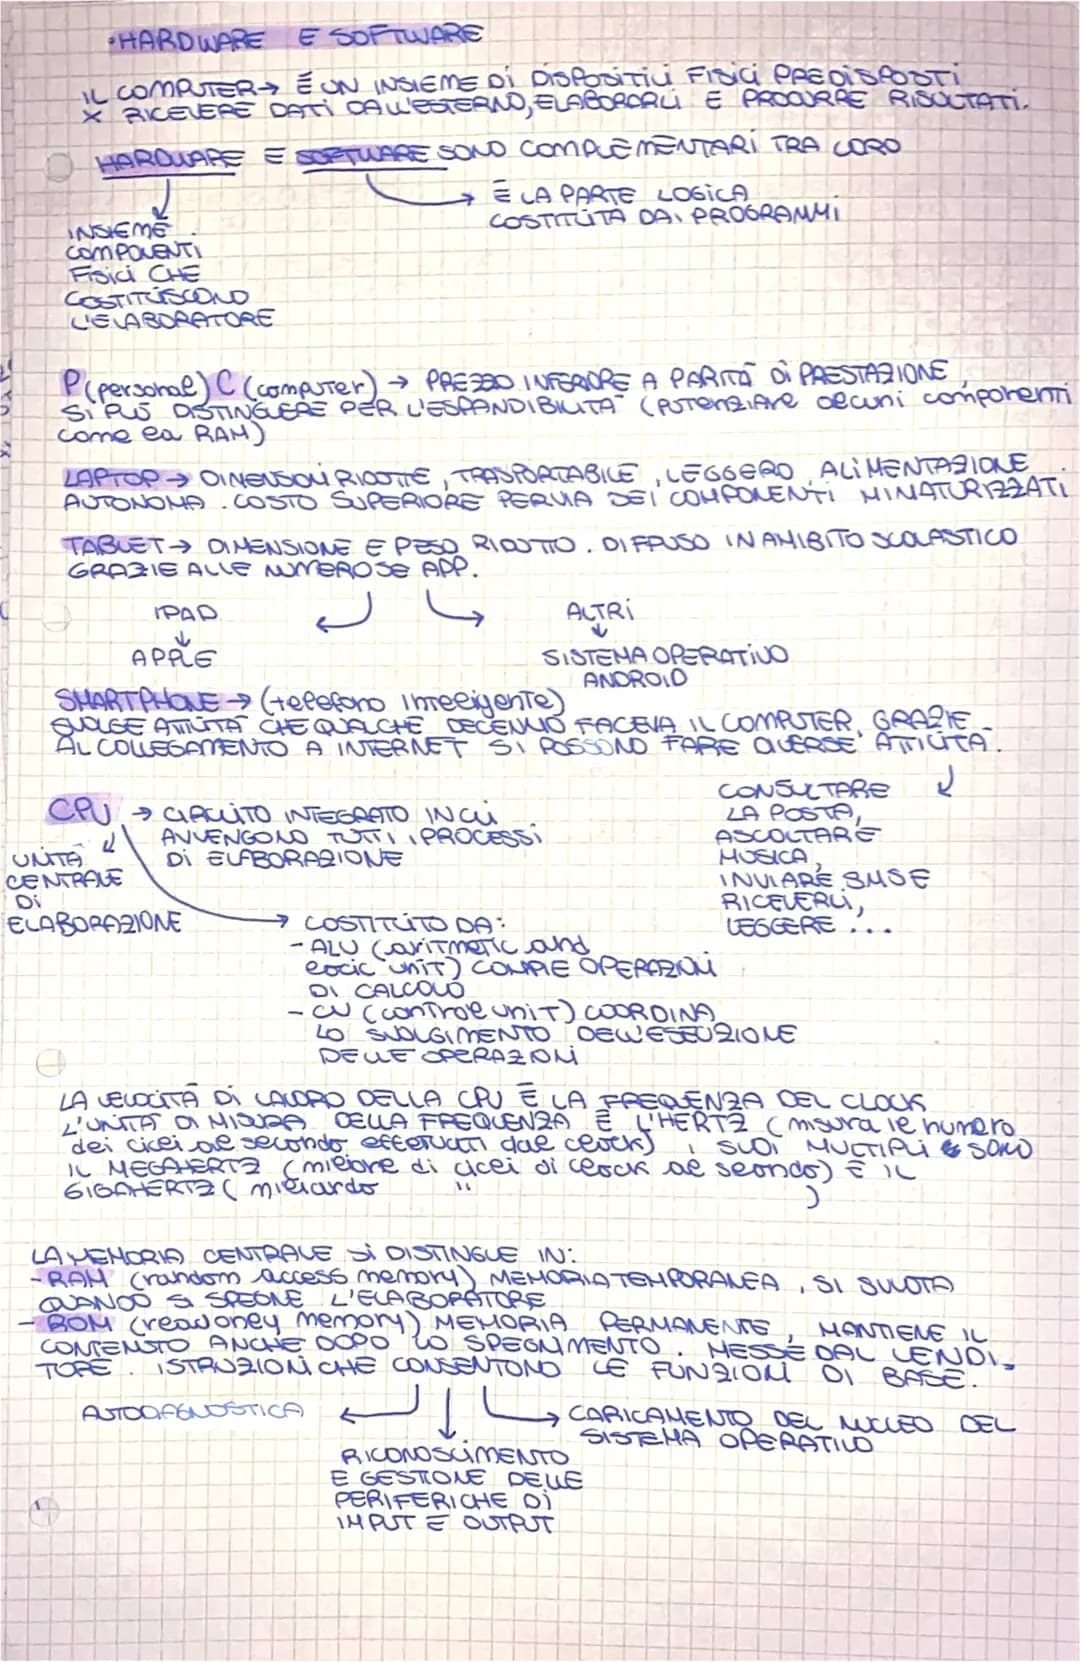 •HARDWARE E SOFTWARE
IL COMPUTER → È UN INSIEME DI DISPOSITIVI FISICI PREDISPOSTI
X RICEVERE DATI DALL'ESTERNO, ELABORARLI E PRODURRE RISULTATI.
HARDWARE E SOFTWARE SONO COMPLEMENTARI TRA LORO
→ È LA PARTE LOGICA
COSTITUITA DAI PROGRAMMI
INSIEME
COMPONENTI
FISICI CHE
COSTITUISCONO
L'ELABORATORE
P(personal) C (computer) → PREZZO INFERIORE A PARITÀ DI PRESTAZIONE,
SI PUÒ DISTINGUERE PER L'ESPANDIBILITÀ (POTENZIARE alcuni componenti
come la RAM)
LAPTOP → DIMENSIONI RIDOTTE, TRASPORTABILE, LEGGERO, ALIMENTAZIONE
AUTONOMA. COSTO SUPERIORE PER VIA DEI COMPONENTI MINATURIZZATI.
TABLET → DIMENSIONE E PESO RIDOTTO. DIFFUSO IN AMBITO SCOLASTICO
GRAZIE ALLE NUMEROSE APP.
IPAD ALTRI
↓ ↓
APPLE SISTEMA OPERATIVO
ANDROID
SMARTPHONE → (telefono intelligente)
SVOLGE ATTIVITÀ CHE QUALCHE DECENNIO FACEVA IL COMPUTER. GRAZIE
AL COLLEGAMENTO A INTERNET SI POSSONO FARE DIVERSE ATTIVITÀ.
CONSULTARE
LA POSTA,
ASCOLTARE
MUSICA,
INVIARE SMS E
RICEVERLI,
LEGGERE ...
CPU → CIRCUITO INTEGRATO IN CUI
AVVENGONO TUTTI I PROCESSI
DI ELABORAZIONE
UNITÀ
CENTRALE
DI
ELABORAZIONE
→ COSTITUITO DA:
- ALU (aritmetic and
logic unit) COMPIE OPERAZIONI
DI CALCOLO
- CU (control unit) COORDINA
LO SVOLGIMENTO DELL'ESECUZIONE
DELLE OPERAZIONI
LA VELOCITÀ DI LAVORO DELLA CPU È LA FREQUENZA DEL CLOCK
L'UNITÀ DI MISURA DELLA FREQUENZA È L'HERTZ (misura il numero
dei cicli al secondo effettuati dal clock), I SUOI MULTIPLI SONO
IL MEGAHERTZ (milione di cicli di clock al secondo) E IL
GIGAHERTZ (miliardo " )
LA MEMORIA CENTRALE SI DISTINGUE IN:
- RAM (random access memory) MEMORIA TEMPORANEA, SI SVUOTA
QUANDO SI SPEGNE L'ELABORATORE
- ROM (read only memory) MEMORIA PERMANENTE, MANTIENE IL
CONTENUTO ANCHE DOPO LO SPEGNIMENTO. MESSE DAL VENDI-
TORE. ISTRUZIONI CHE CONSENTONO LE FUNZIONI DI BASE.
AUTODIAGNOSTICA
CARICAMENTO DEL NUCLEO DEL
SISTEMA OPERATIVO
RICONOSCIMENTO
E GESTIONE DELLE
PERIFERICHE DI
INPUT E OUTPUT